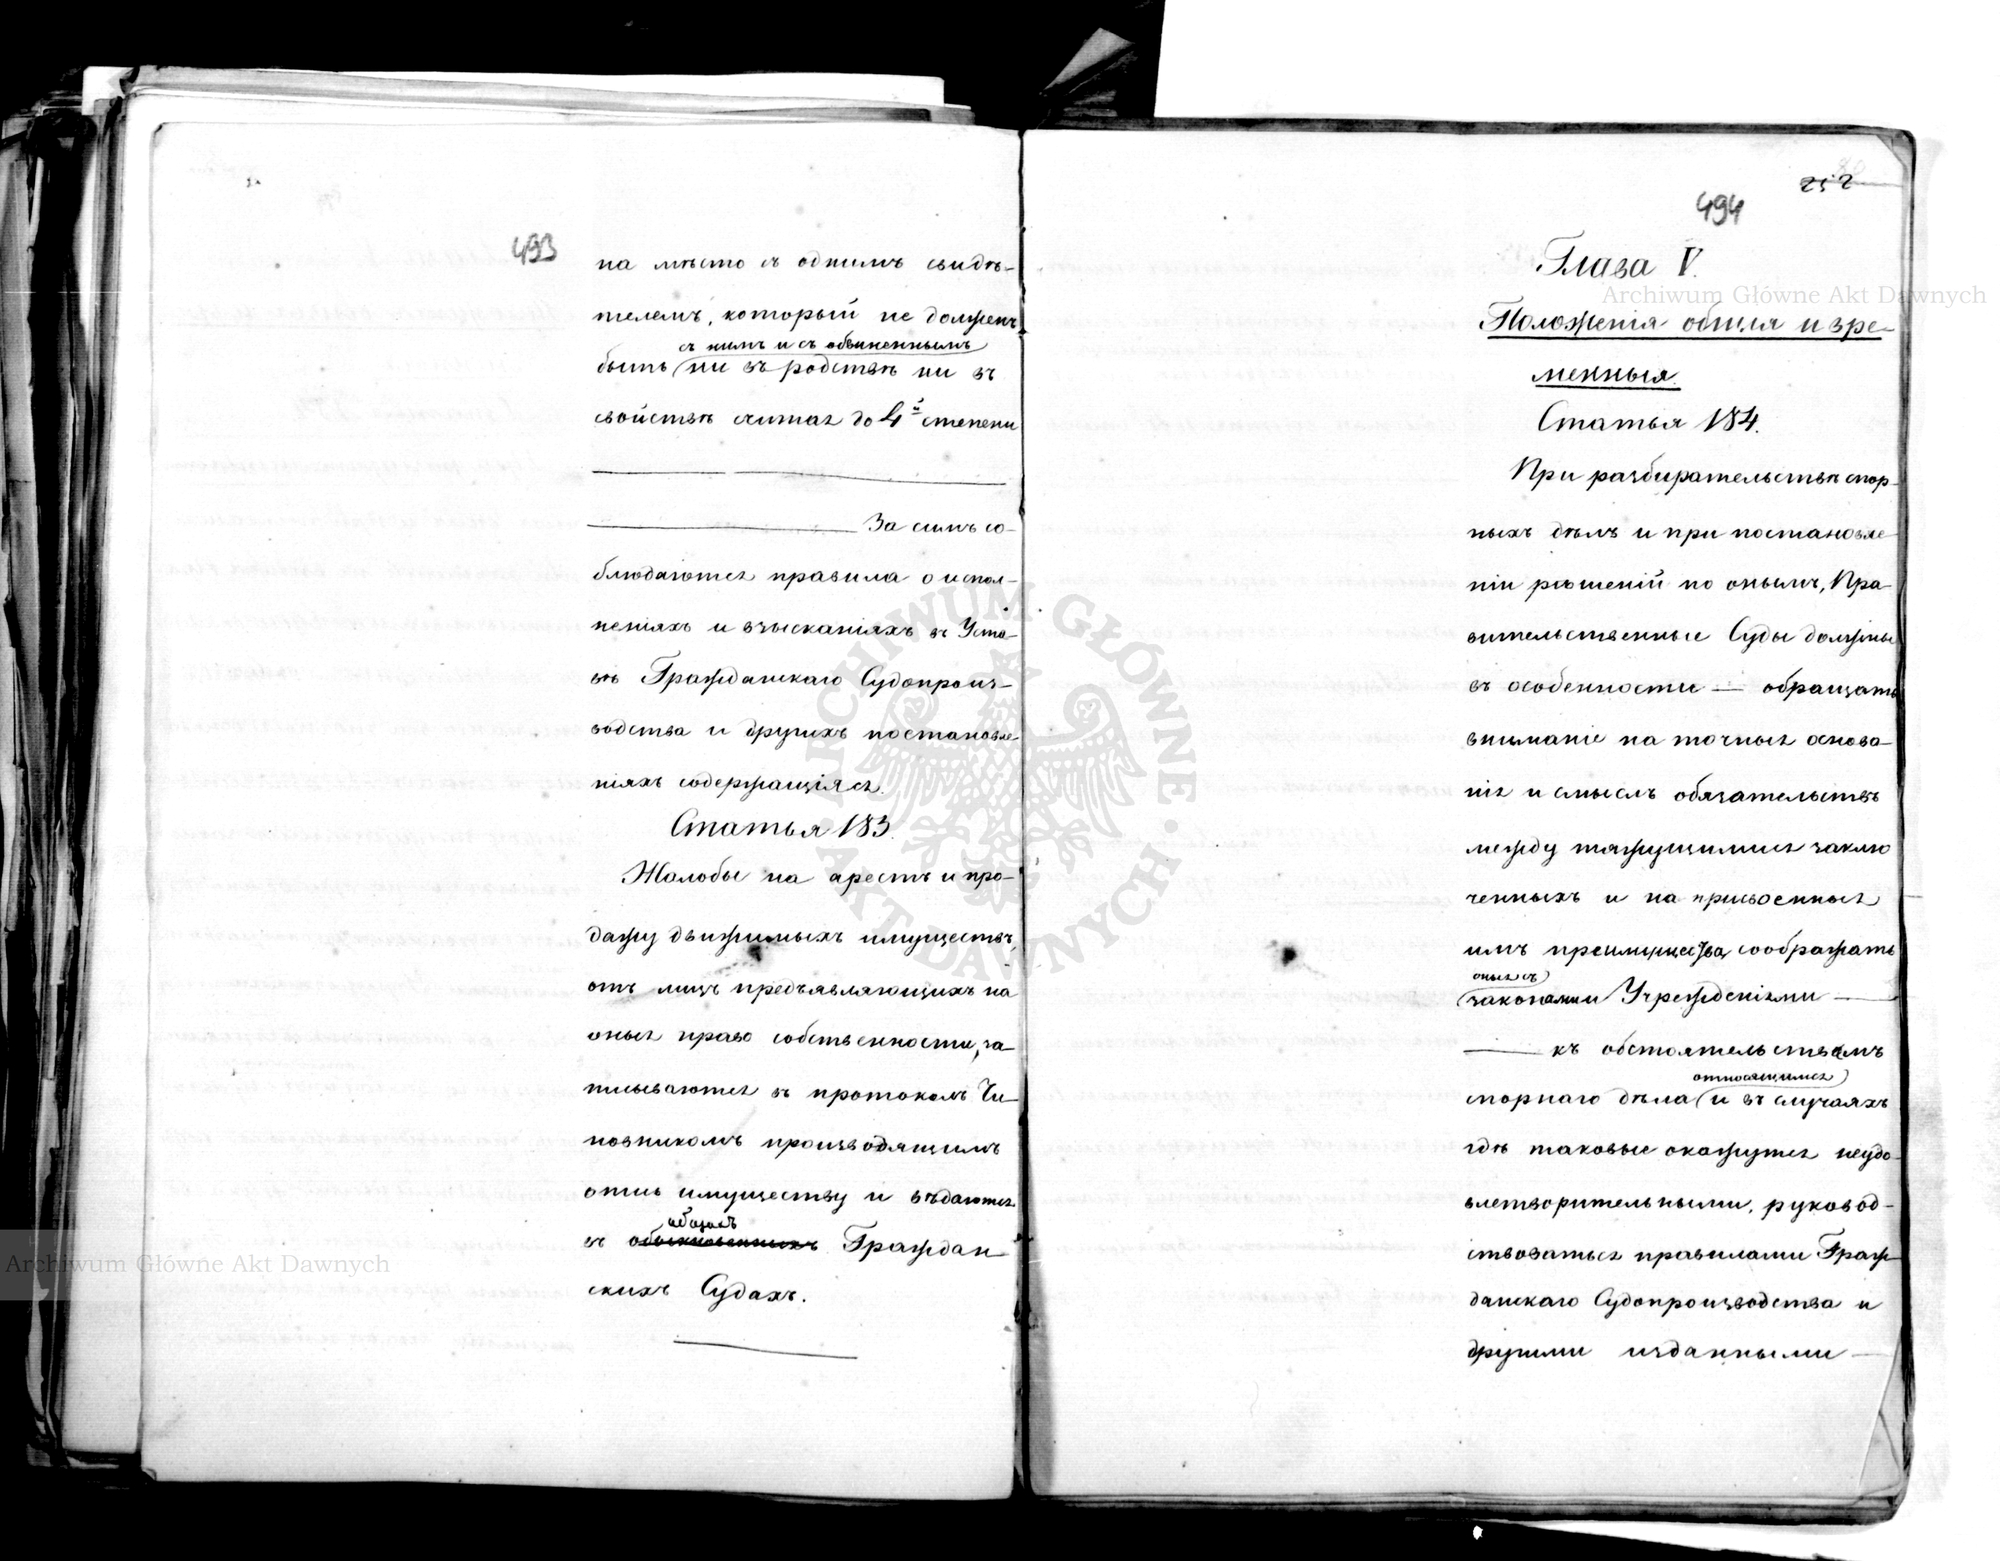 493
на мѣсто съ однимъ свидѣ-
телемъ, который не долженъ
съ нимъ и съ обвиненнымъ
быть ни въ родствѣ ни въ
свойствѣ считая до 4й степени
За симъ со-
блюдаются правила о испол-
неніяхъ и взысканіяхъ въ Уста-
вѣ Гражданскаго Судопроиз-
водства и другихъ постановле-
ніяхъ содержащіяся.
Статья 183.
Жалобы на арестъ и про-
дажу движимыхъ имуществъ,
отъ лицъ предъявляющихъ на
оныя право собственности, за-
писываются въ протоколъ Чи-
новникомъ производящимъ
опись имуществу и вѣдаются
общихъ
въ обыкновенныхъ Граждан
скихъ Судахъ.
252
494
Глава V.
Положенія общія и вре-
менныя.
Статья 184.
При разбирательствѣ спор-
ныхъ дѣлъ и при постановле-
ніи рѣшеній по онымъ, Пра-
вительственные Суды должны
въ особенности — обращать
вниманіе на точныя основа-
нія и смыслъ обязательствъ
между тяжущимися заклю
ченныхъ и на присвоенныя
имъ преимущества соображать
оныя съ
законами и Учрежденіями —
— къ обстоятельствамъ
относящимися
спорнаго дѣла и въ случаяхъ
гдѣ таковые окажутся неудо-
влетворительными, руковод-
ствоваться правилами Граж
данскаго Судопроизводства и
другими изданными —
Archiwum Główne Akt Dawnych
Archiwum Główne Akt Dawnych
ARCHIWUM GŁÓWNE • AKT DAWNYCH •